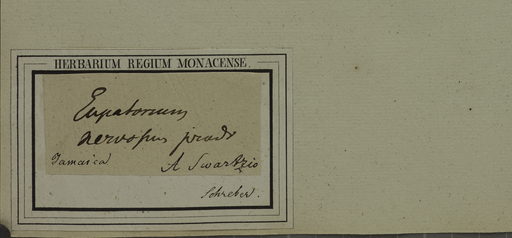 HERBARIUM REGIUM MONACENSE.
Eupatorium
nervosum prodr
Jamaica A Swartzio
Schreber.